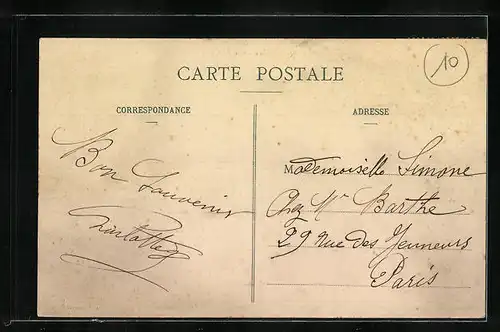 10
CARTE POSTALE
CORRESPONDANCE
Bon Souvenir
ADRESSE
Mademoiselle Simone
Chez Mr Barthe
29 Rue des Jeuneurs
Paris